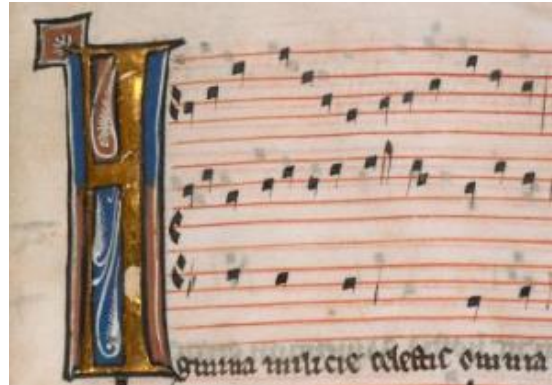 Agmina milicie celestis omnia